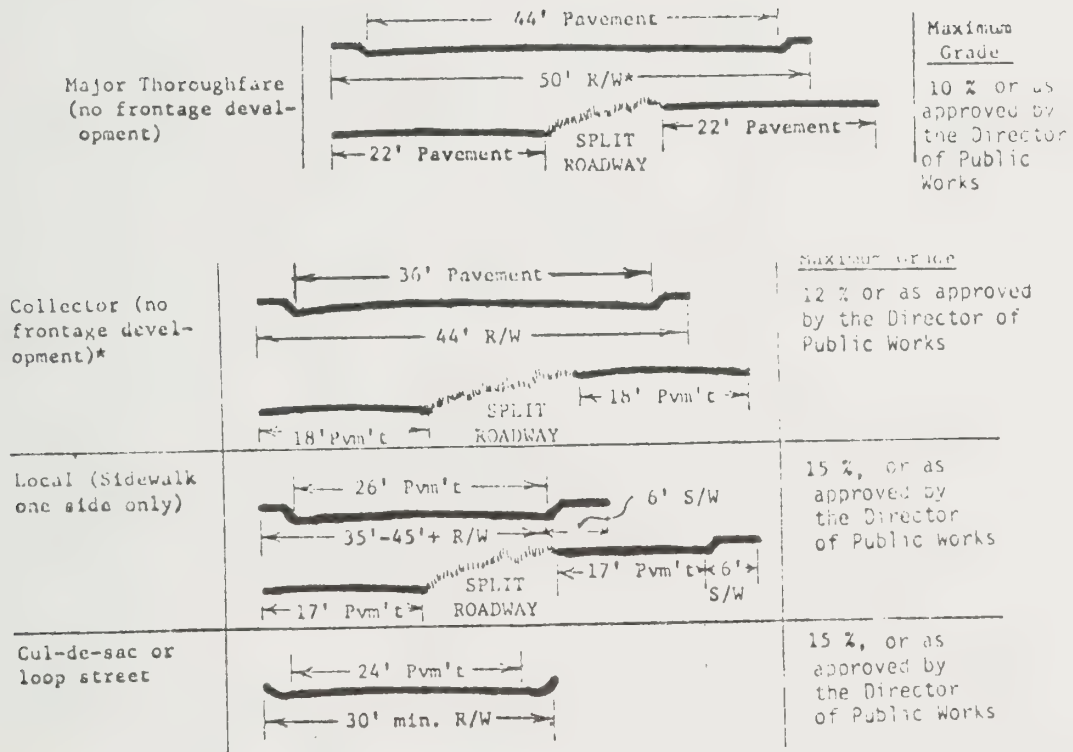 44' Pavement
50' R/W*
Major Thoroughfare
(no frontage devel-
opment)
22' Pavement
SPLIT
ROADWAY
22' Pavement
Maximum
Grade
10 % or as
approved by
the Director
of Public
Works
Collector (no
frontage devel-
opment)*
36' Pavement
44' R/W
18'Pvm't
SPLIT
ROADWAY
18' Pvm't
Maximum Grade
12 % or as approved
by the Director of
Public Works
Local (Sidewalk
one side only)
26' Pvm't
6' S/W
35'-45'+ R/W
17' Pvm't
SPLIT
ROADWAY
17' Pvm't
6'
S/W
15 %, or as
approved by
the Director
of Public Works
Cul-de-sac or
loop street
24' Pvm't
30' min. R/W
15 %, or as
approved by
the Director
of Public Works